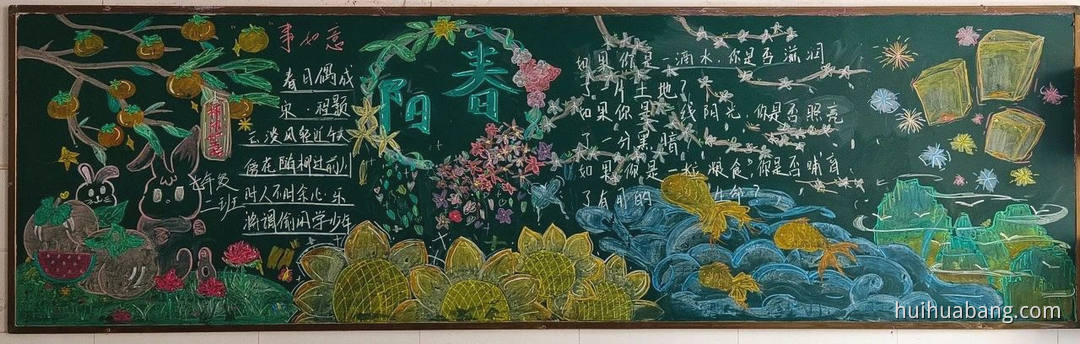 事如意
春日偶成
宋·程颢
云淡风轻近午天
傍花随柳过前川
时人不时余心乐
将谓偷闲学少年
七年级
一班
春
阳
如果你是一滴水,你是否滋润
了一片土地?
如果你是一线阳光,你是否照亮
了一分黑暗?
如果你是一粒粮食,你是否哺育
了有用的生命?
huihuabang.com